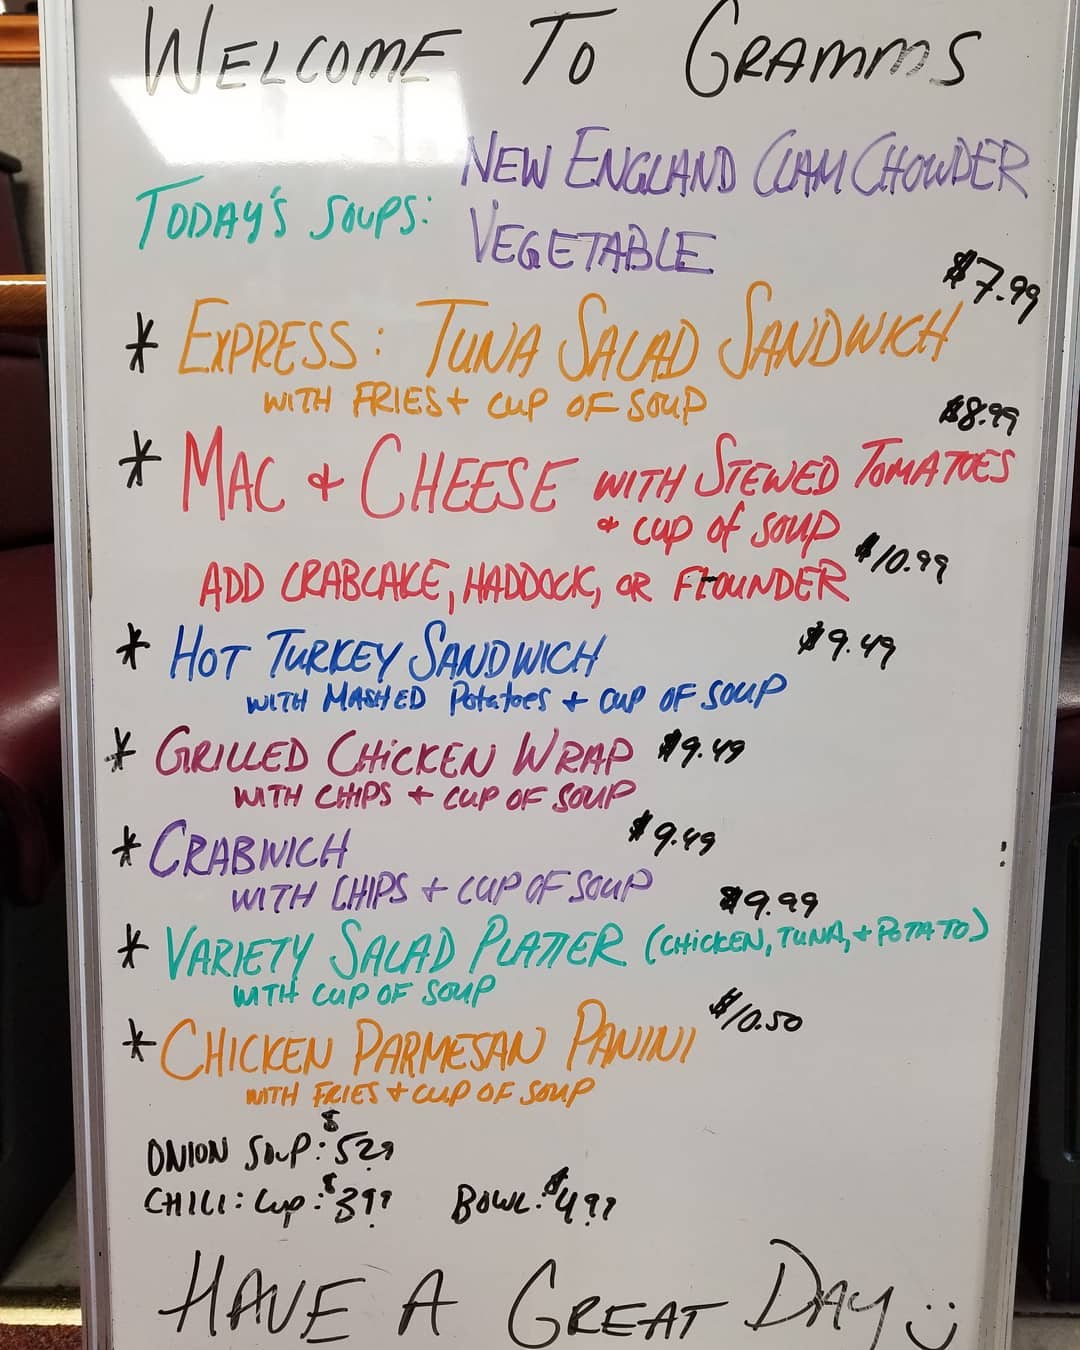 WELCOME TO GRAMMS
TODAY'S SOUPS: NEW ENGLAND CLAM CHOWDER
VEGETABLE
$7.99
* EXPRESS: TUNA SALAD SANDWICH
WITH FRIES + CUP OF SOUP
$8.99
* MAC & CHEESE WITH STEWED TOMATOES
& CUP of SOUP
ADD CRABCAKE, HADDOCK, OR FLOUNDER $10.99
* HOT TURKEY SANDWICH $9.49
WITH MASHED Potatoes + CUP OF SOUP
* GRILLED CHICKEN WRAP $9.49
WITH CHIPS + CUP OF SOUP
* CRABWICH $9.49
WITH CHIPS + CUP OF SOUP
$9.99
* VARIETY SALAD PLATTER (CHICKEN, TUNA, + POTATO)
WITH CUP OF SOUP
* CHICKEN PARMESAN PANINI $10.50
WITH FRIES + CUP OF SOUP
ONION SOUP: $5.29
CHILI: Cup: $3.99 BOWL: $4.99
HAVE A GREAT DAY :)